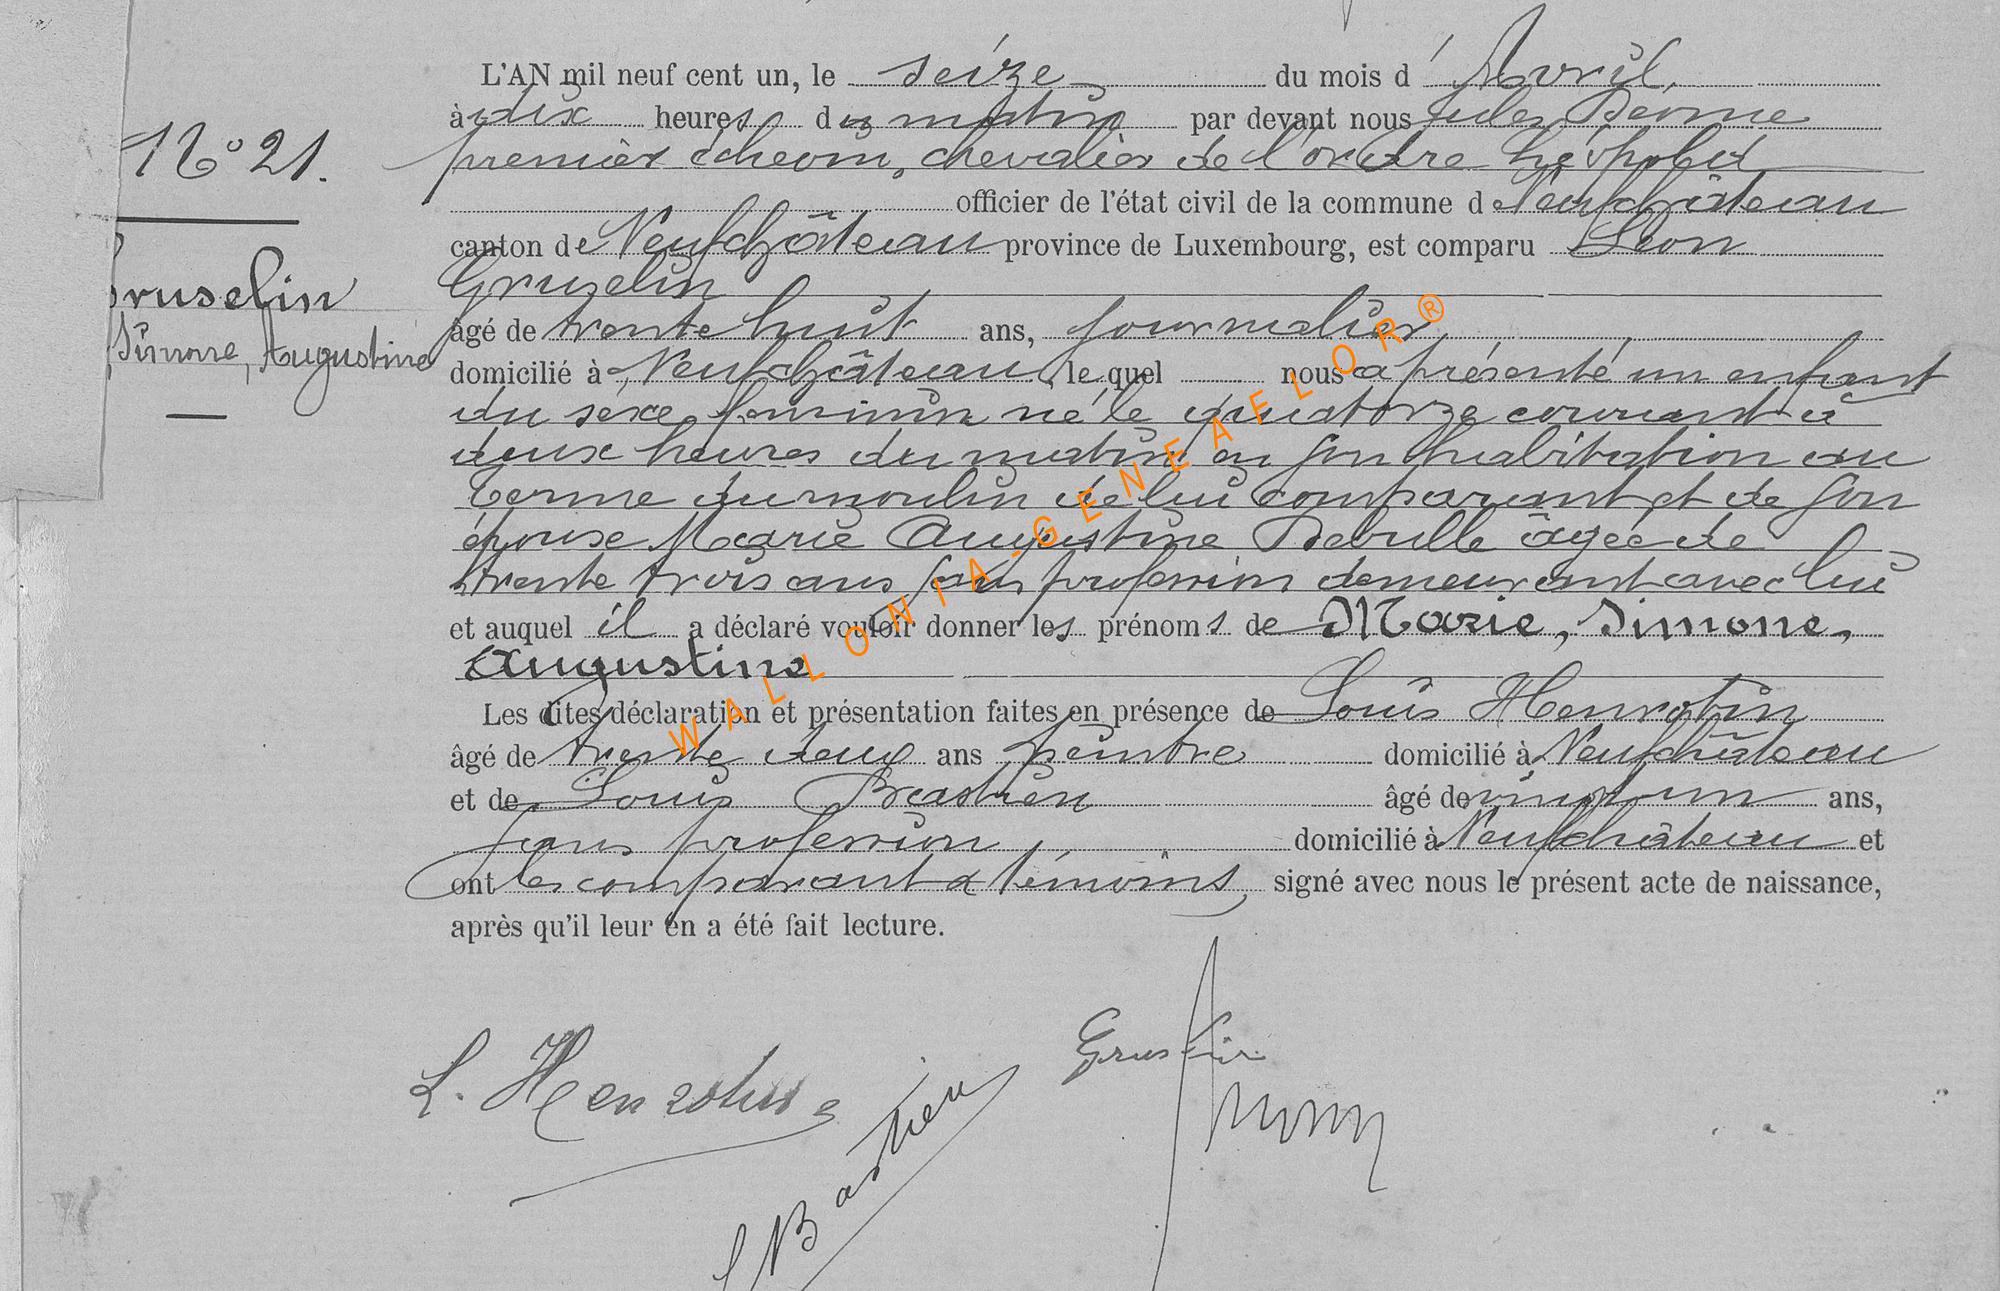 N° 21.
Gruselin
Simone, Augustine
L'AN mil neuf cent un, le seize du mois d'Avril,
à dix heures du matin par devant nous Jules
premier échevin, chevalier de l'ordre Léopold
officier de l'état civil de la commune de Neufchâteau
canton de Neufchâteau province de Luxembourg, est comparu Léon
Gruselin
âgé de trente huit ans, journalier
domicilié à Neufchâteau, lequel nous a présenté un enfant
du séxe feminin né le quatorze courant à
deux heures du matin en son habitation au
terme du moulin de lui comparant et de son
épouse Marie Augustine Debulle âgée de
trente trois ans sans profession demeurant avec lui
et auquel il a déclaré vouloir donner les prénoms de Marie, Simone,
Augustine
Les dites déclaration et présentation faites en présence de Louis Henrotin
âgé de trente deux ans peintre domicilié à Neufchâteau
et de Louis Bastien âgé de vingt un ans,
sans profession domicilié à Neufchâteau et
ont les comparant & témoins signé avec nous le présent acte de naissance,
après qu'il leur en a été fait lecture.
L. Henrotin
Gruselin
L Bastien
WALLONIA-GENEAFLOR®